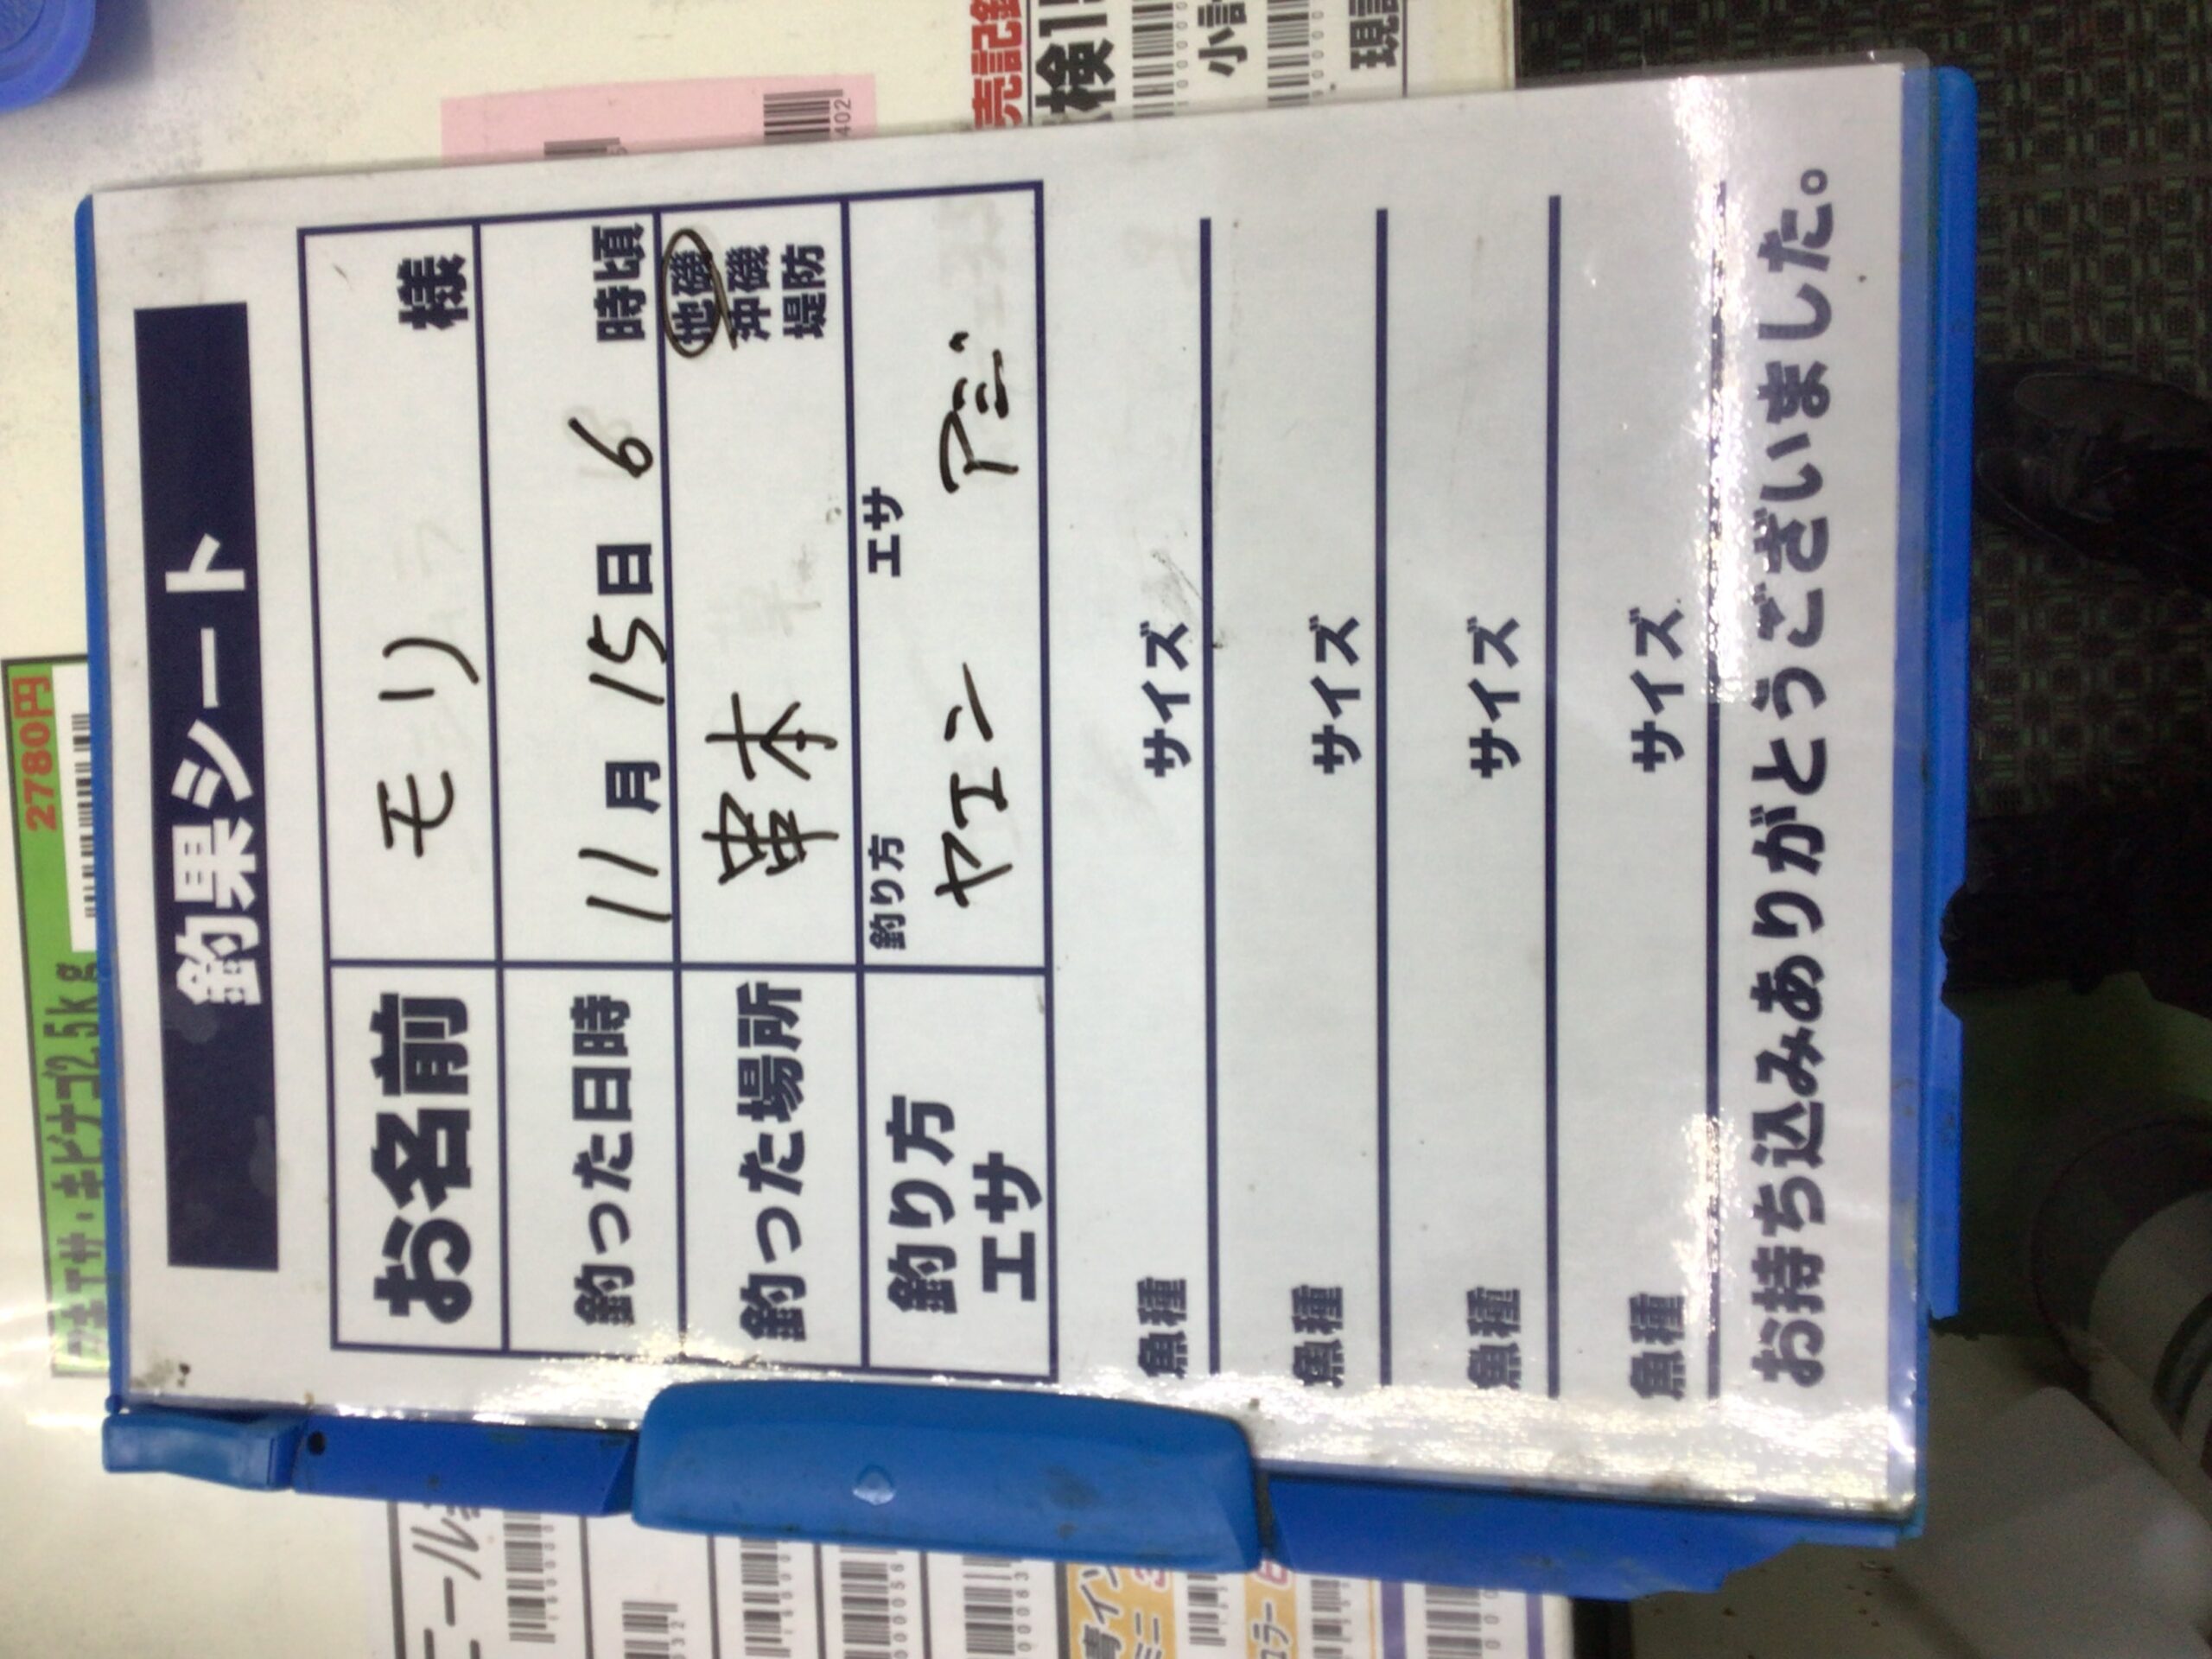 釣果シート
お名前 モリ 様
釣った日時 11月15日6時頃
釣った場所 串本 地磯
沖磯
堤防
釣り方
エサ
釣り方 ヤエン
エサ アジ
魚種 サイズ
魚種 サイズ
魚種 サイズ
魚種 サイズ
お持ち込みありがとうございました。
2780円
キビナゴ2.5kg
小計